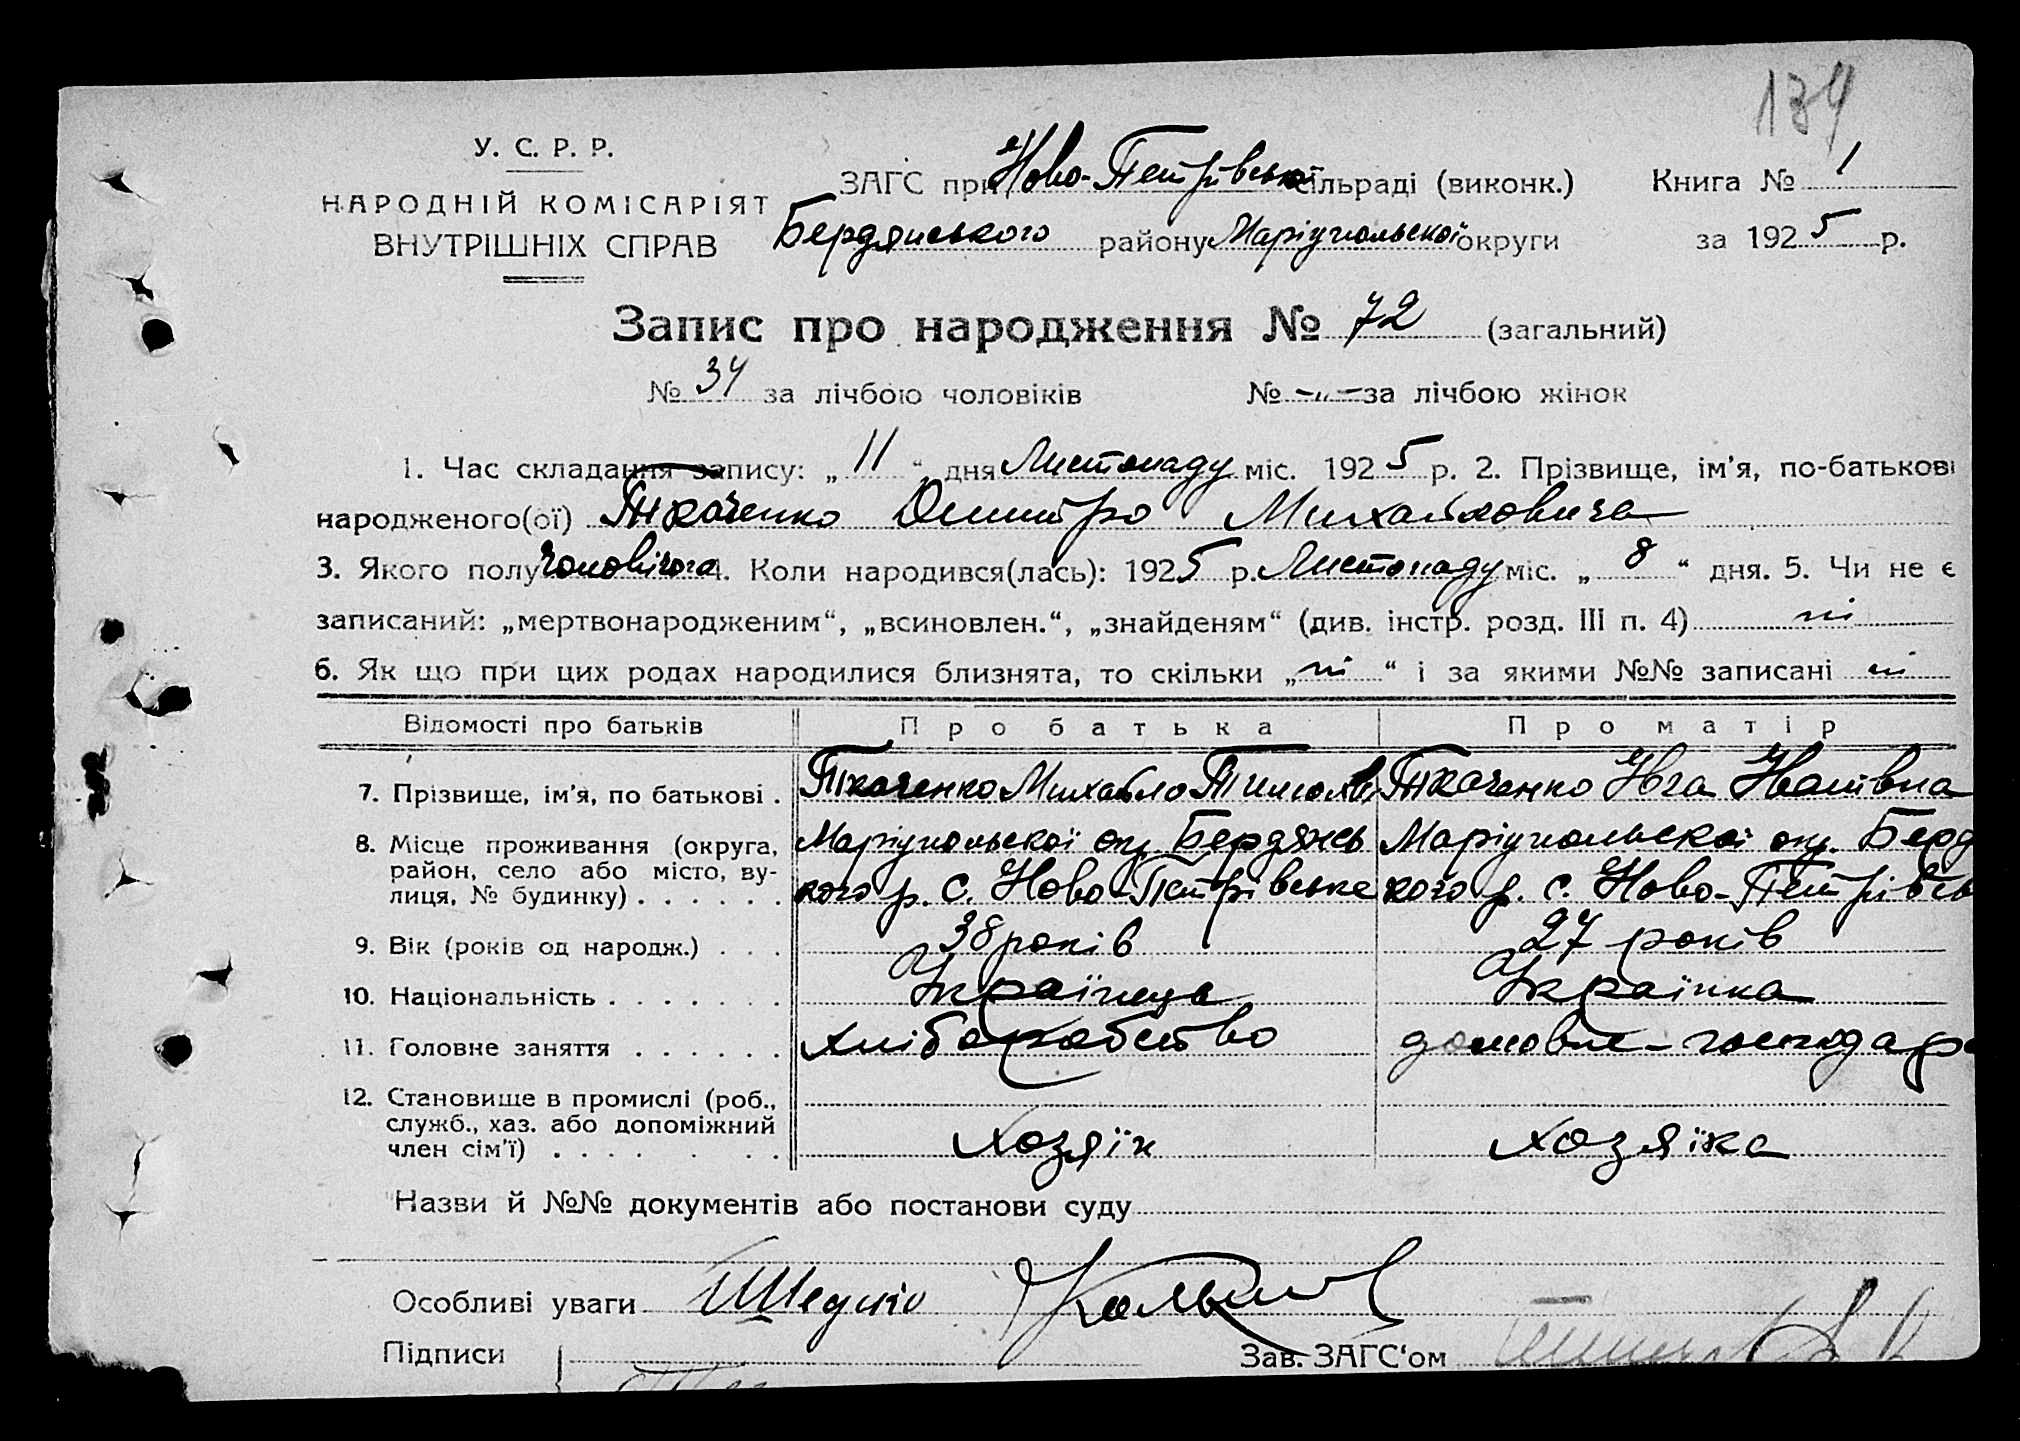 134
У. С. Р. Р.
НАРОДНІЙ КОМІСАРІЯТ
ВНУТРІШНІХ СПРАВ
ЗАГС при Ново-Петрівській сільраді (виконк.) Книга № 1
Бердянського району Маріупольської округи за 1925 р.
Запис про народження № 72 (загальний)
№ 34 за лічбою чоловіків № -„- за лічбою жінок
1. Час складання запису: „ 11 “ дня Листопаду міс. 1925 р. 2. Прізвище, ім’я, по-батькові
народженого(ої) Ткаченко Дмитро Михайловича
3. Якого полу чоловічого 4. Коли народився(лась): 1925 р. Листопаду міс. „ 8 “ дня. 5. Чи не є
записаний: „мертвонародженим“, „всиновлен.“, „знайденям“ (див. інстр. розд. III п. 4) ні
6. Як що при цих родах народилися близнята, то скільки „ ні “ і за якими №№ записані ні
Відомості про батьків Про батька Про матір
7. Прізвище, ім’я, по батькові . Ткаченко Михайло Ткаченко Ївга Іванівна
8. Місце проживання (округа, Маріупольскої окр. Бердянсь Маріупольскої окр. Берд
район, село або місто, ву- кого р. с. Ново-Петрівське кого р. с. Ново-Петрівсь
лиця, № будинку) . . . . . .
9. Вік (років од народж.) . . . 38 років 27 років
10. Національність . . . . . . . Українець Українка
11. Головне заняття . . . . . . хліборобство домовле-господар
12. Становище в промислі (роб.,
служб., хаз. або допоміжний хозяїн хозяїка
член сім’ї) . . . . . . .
Назви й №№ документів або постанови суду
Особливі уваги
Підписи Зав. ЗАГС‘ом